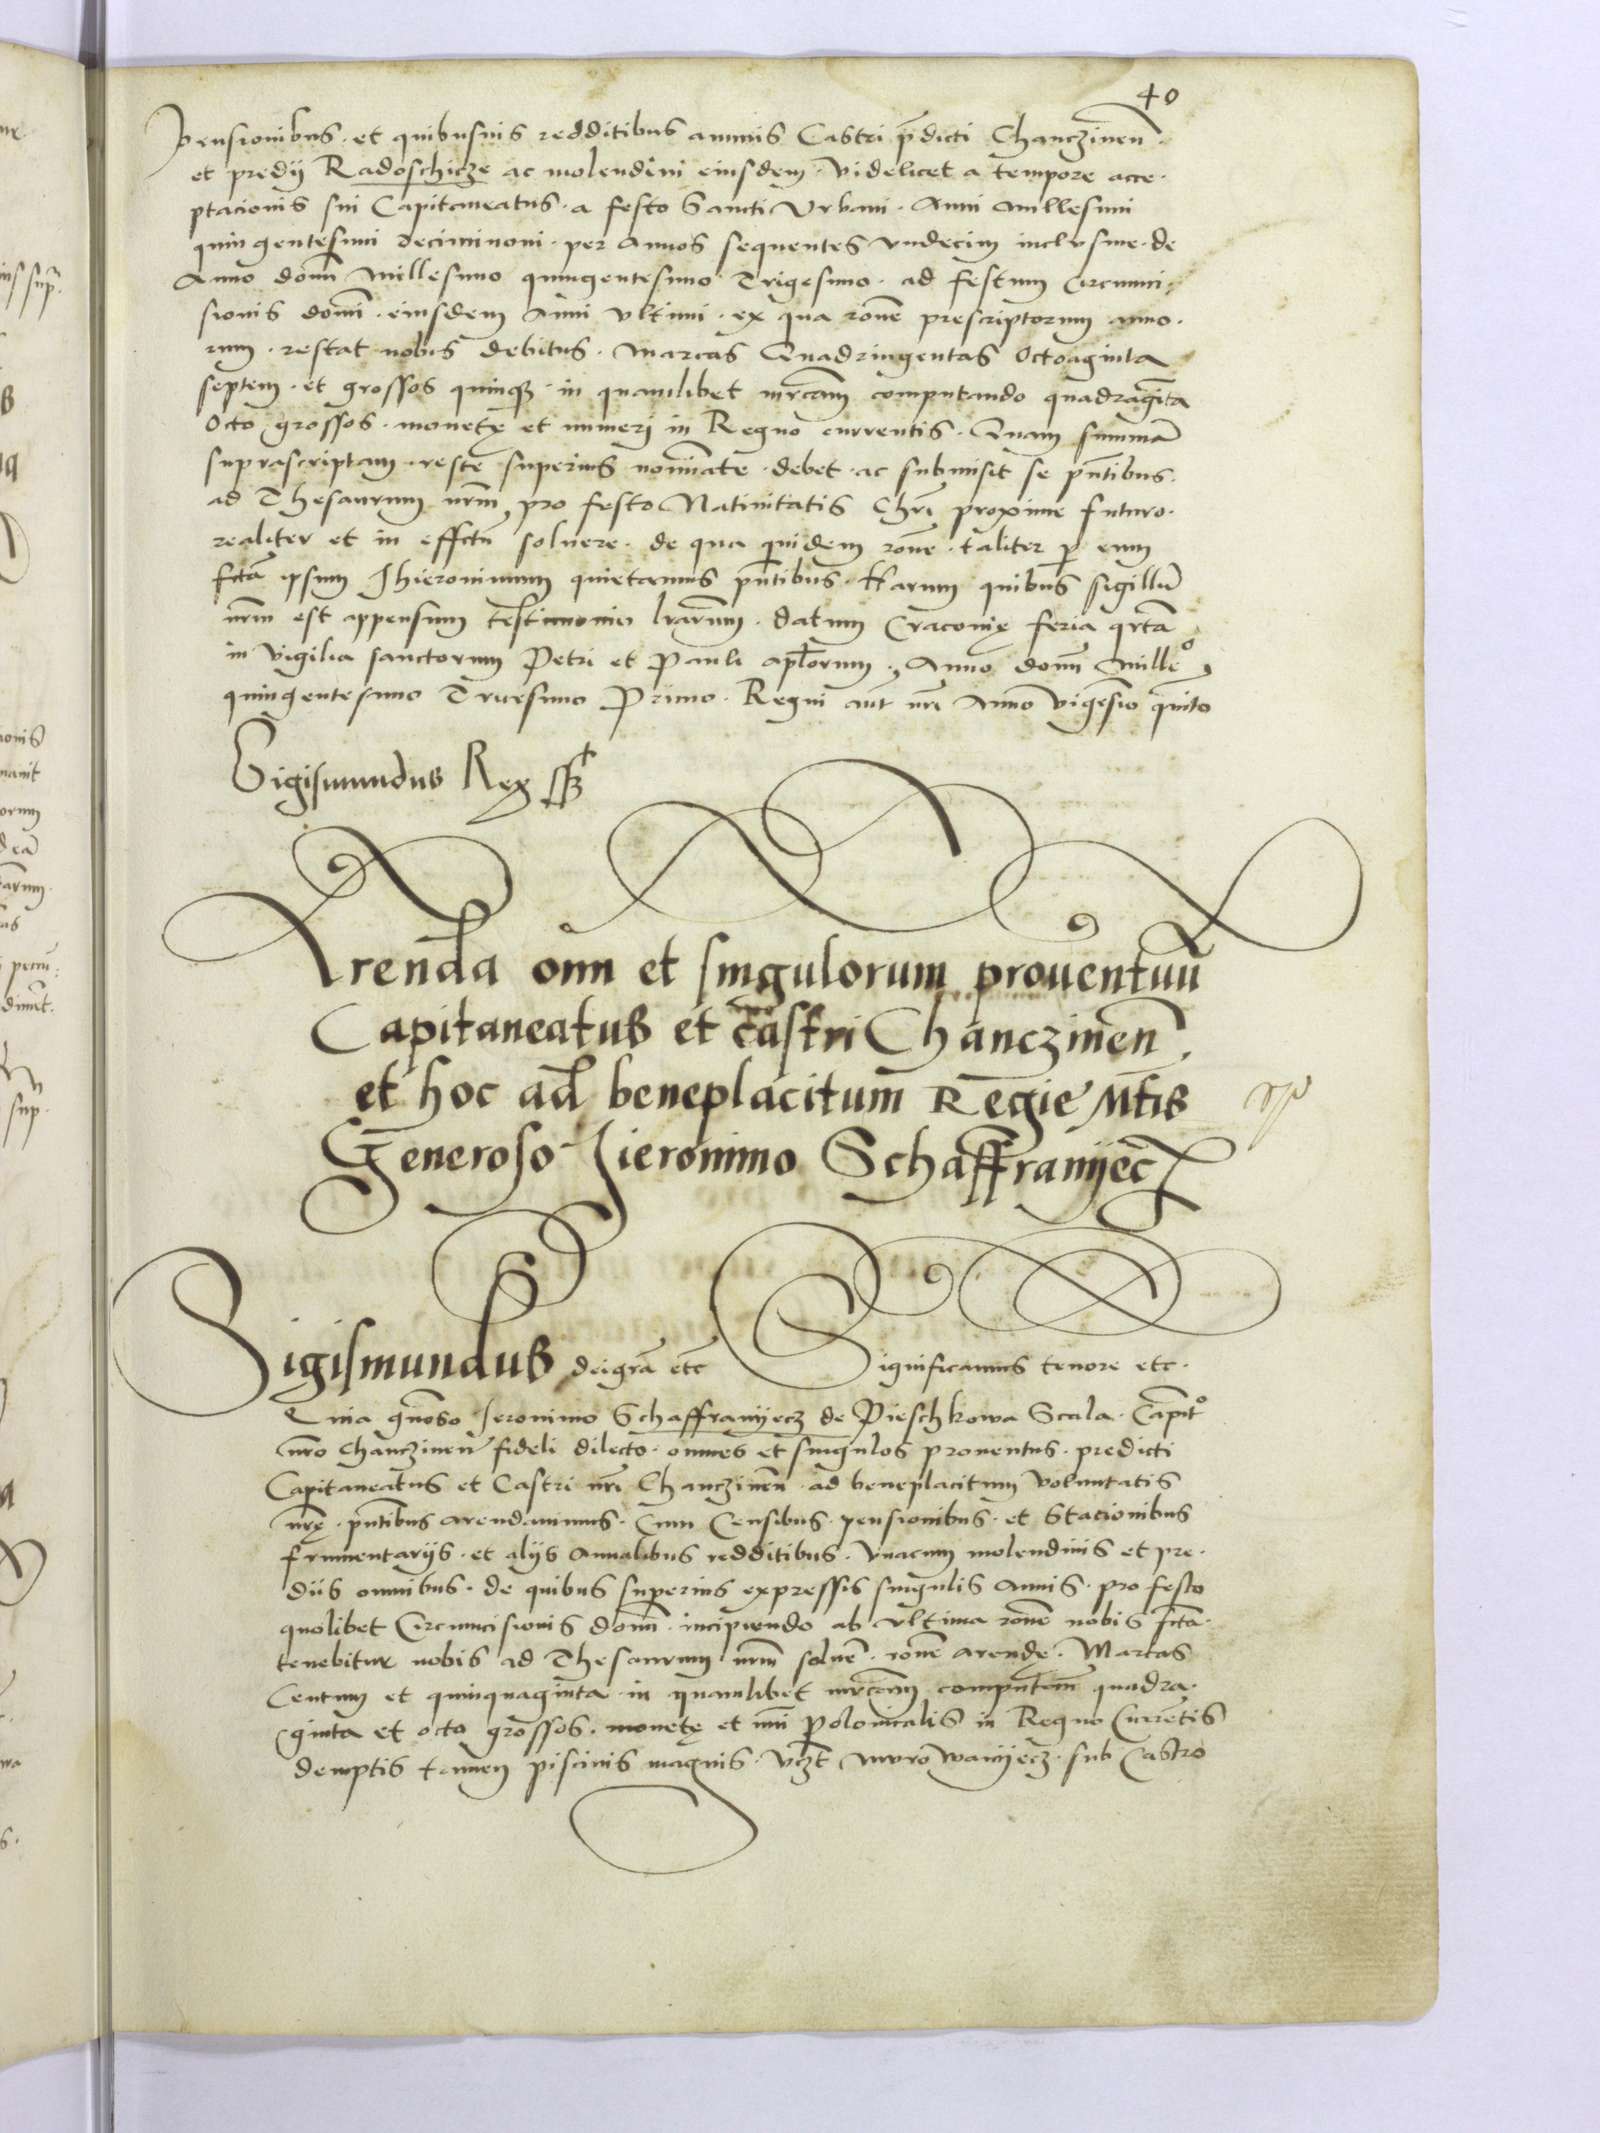 40
pensionibus · et quibusuis redditibus annuis Castri p̄dicti Chanczinen̄ ·
et predij Radoschicze ac molendini eiusdem · Videlicet a tempore acce ·
ptacionis sui Capitaneatus · a festo Sancti Vrbani · Anni millesimi
quingentesimi deciminoni · per annos sequentes vndecim inclusiue · de
Anno domī millesimo quingentesimo Trigesimo · ad festum Circumci ·
sionis domī · eiusdem Anni vltimi · ex qua rōne prescriptorum anno ·
rum · restat nobis debitus · marcas Quadringentas Octoaginta
septem · et grossos quinqȝ · in quamlibet mrcam computando quadragīta
Octo grossos · monetę et numeri in Regno currentis · Quam summā
suprascriptam · restę superius nominatę · debet · ac submisit se pn̄tibus ·
ad Thesaurum nrm̄ pro festo Natiuitatis Chrī proxime futuro ·
realiter et in effctū soluere · de qua quidem rōne · taliter p eum
fctā ipsum Jhieronimum quietamus pn̄tibus · Harum quibus sigillū
nrm̄ est appensum testimonio lrarum · datum Cracouię feria qrta
in vigilia sanctorum Petri et Pauli aplorum · Anno domī Mille⁰
quingentesimo Tricesimo Primo · Regni aūt nrī Anno vigesio quīto
Sigismundus Rex sst
Arenda om̄ et singulorum prouentuū
Capitaneatus et castri Chanczinen̄
et hoc ad beneplacitum Regie Mtis
Generoso Jieronimo Schaffranyecz
Sigismundus deigrā etc Significamus tenore etc ·
Quia gnōso Jeronimo Schaffranyecz de Pieschkowa Scala · Capit⁰
nro Chanczinen̄ fideli dilecto · omnes et singulos prouentus · predicti
Capitaneatus et Castri nrī Chanczinen̄ · ad beneplacitum voluntatis
nrę · pn̄tibus arendauimus · Cum Censibus · pensionibus · et Stacionibus
frumentarijs · et alijs Annalibus redditibus · vnacum molendinis et pre ·
diis omnibus · de quibus superius expressis singulis Annis · pro festo
quolibet Circumcisionis domī · incipiendo ab vltima rōne nobis fcta ·
tenebitur nobis ad Thesaurum nrm̄ soluē · rōne arendę · Marcas
Centum et quinquaginta · in quamlibet mrcam computam quadra ·
ginta et octo grossos · monetę et nn̄i polonicalis in Regno Currentis
demptis tamen piscinis magnis · vczt Murowanyecz · sub Castro